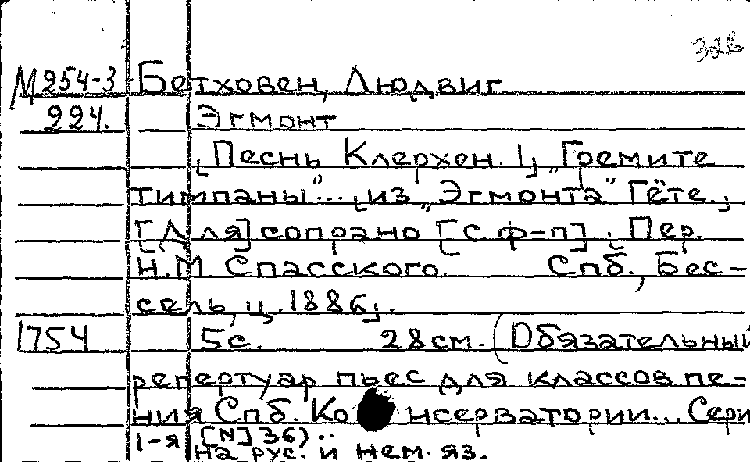 326
М254-3 Бетховен, Людвиг
224. Эгмонт
[Песнь Клерхен. 1] „Гремите
тимпаны"... [из „Эгмонта" Гёте.]
[Для] сопрано [с ф-п]. Пер.
Н.М. Спасского. Спб., Бес-
сель, ц. 1886].
1754 5с. 28см. (Обязательный
репертуар пьес для классов пе-
ния Спб. Консерватории... Сери
1-я [N] 36)..
на рус. и нем. яз.